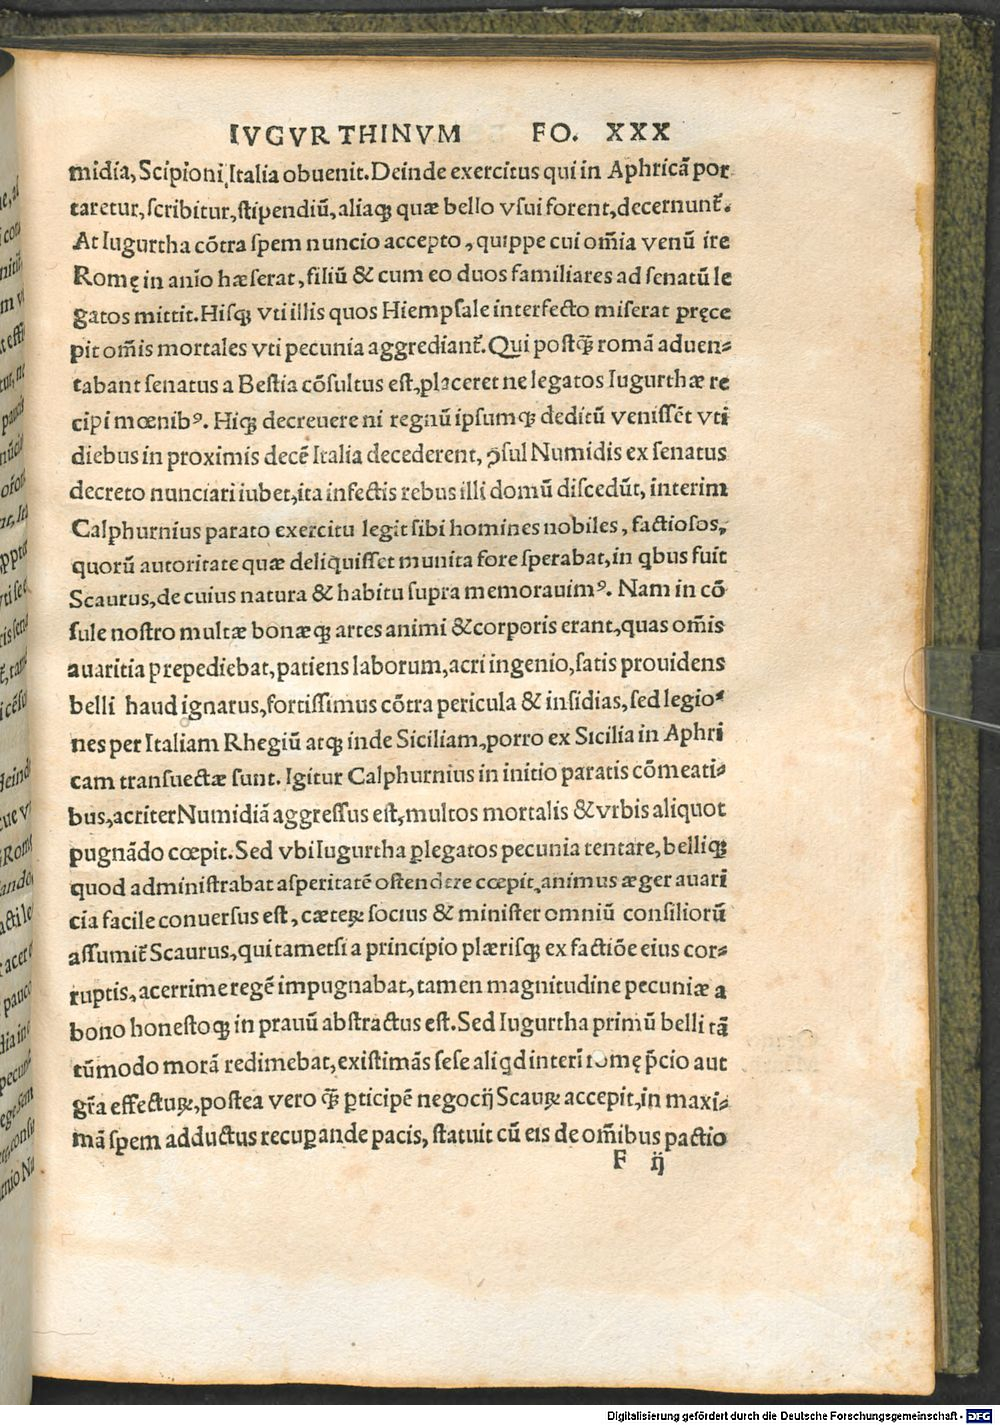 IVGVRTHINVM FO. XXX
midia, Scipioni, Italia obuenit. Deinde exercitus qui in Aphricã por
taretur, scribitur, stipendiũ, aliaqꝫ quæ bello vsui forent, decernunt̃.
At Iugurtha cõtra spem nuncio accepto, quippe cui om̃ia venũ ire
Romę in anio hæserat, filiũ & cum eo duos familiares ad senatũ le
gatos mittit. Hisqꝫ vti illis quos Hiempsale interfecto miserat pręce
pit om̃is mortales vti pecunia aggrediant̃. Qui postqꝫ̃ romã aduen-
tabant senatus a Bestia cõsultus est, placeret ne legatos Iugurthæ re
cipi mœnibꝰ. Hiqꝫ decreuere ni regnũ ipsumqꝫ deditũ venissẽt vti
diebus in proximis decẽ Italia decederent, ꝯsul Numidis ex senatus
decreto nunciari iubet, ita infectis rebus illi domũ discedũt, interim
Calphurnius parato exercitu legit sibi homines nobiles, factiosos,
quorũ autoritate quæ deliquisset munita fore sperabat, in qbus fuit
Scaurus, de cuius natura & habitu supra memorauimꝰ. Nam in cõ
sule nostro multæ bonæqꝫ artes animi & corporis erant, quas om̃is
auaritia prepediebat, patiens laborum, acri ingenio, satis prouidens
belli haud ignarus, fortissimus cõtra pericula & insidias, sed legio-
nes per Italiam Rhegiũ atqꝫ inde Siciliam, porro ex Sicilia in Aphri
cam transuectæ sunt. Igitur Calphurnius in initio paratis cõmeati-
bus, acriter Numidiã aggressus est, multos mortalis & vrbis aliquot
pugnãdo cœpit. Sed vbi Iugurtha ꝑ legatos pecunia tentare, belliqꝫ
quod administrabat asperitatẽ ostendere cœpit, animus æger auari
cia facile conuersus est, cæteꝝ socius & minister omniũ consiliorũ
assumit̃ Scaurus, qui tametsi a principio plærisqꝫ ex factiõe eius cor-
ruptis, acerrime regẽ impugnabat, tamen magnitudine pecuniæ a
bono honestoqꝫ in prauũ abstractus est. Sed Iugurtha primũ belli tã
tũmodo morã redimebat, existimãs sese aliqd interĩ romę p̃cio aut
gr̃a effectuꝝ, postea vero qꝫ̃ ꝑticipẽ negocij Scauꝝ accepit, in maxi-
mã spem adductus recuꝑande pacis, statuit cũ eis de om̃ibus pactio
F ij
Digitalisierung gefördert durch die Deutsche Forschungsgemeinschaft - DFG